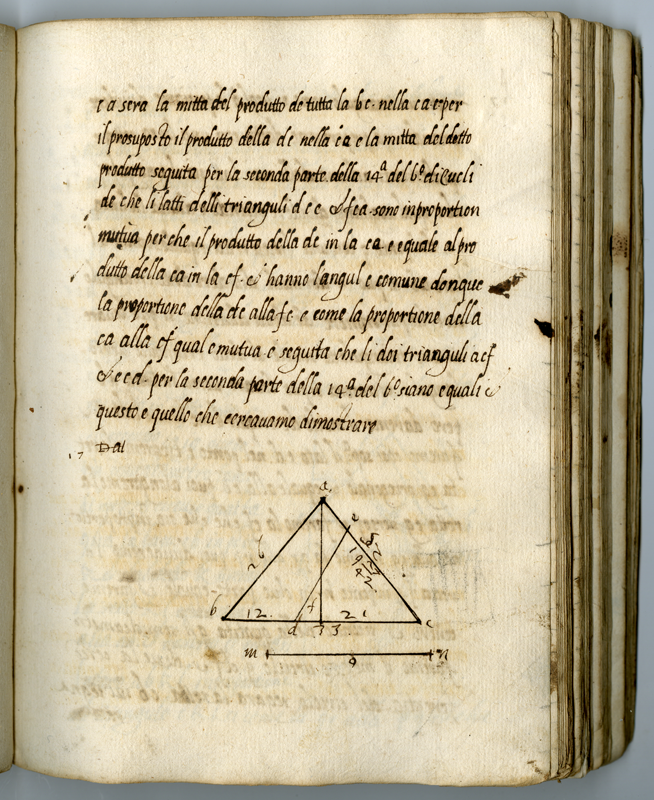 ca sera la mitta del produtto de tutta la bc. nella ca e per
il prosuposto il produtto della dc nella ca e la mitta del detto
produtto seguita per la seconda parte della 14ª del 6º di Eucli
de che li latti delli trianguli d e c & f c a sono in proportion
mutua perche il produtto della dc in la ca. e equale al pro
dutto della ca in la cf. & hanno l'angul c comune donque
la proportione della dc alla fc e come la proportione della
ca alla cf qual e mutua e seguita che li doi trianguli acf
& ecd. per la seconda parte della 14ª del 6º siano equali &
questo e quello che cercavamo dimostrare
Dal
a
e
26
19
27
42
b
12.
f
21
c
d
33.
m
9
n